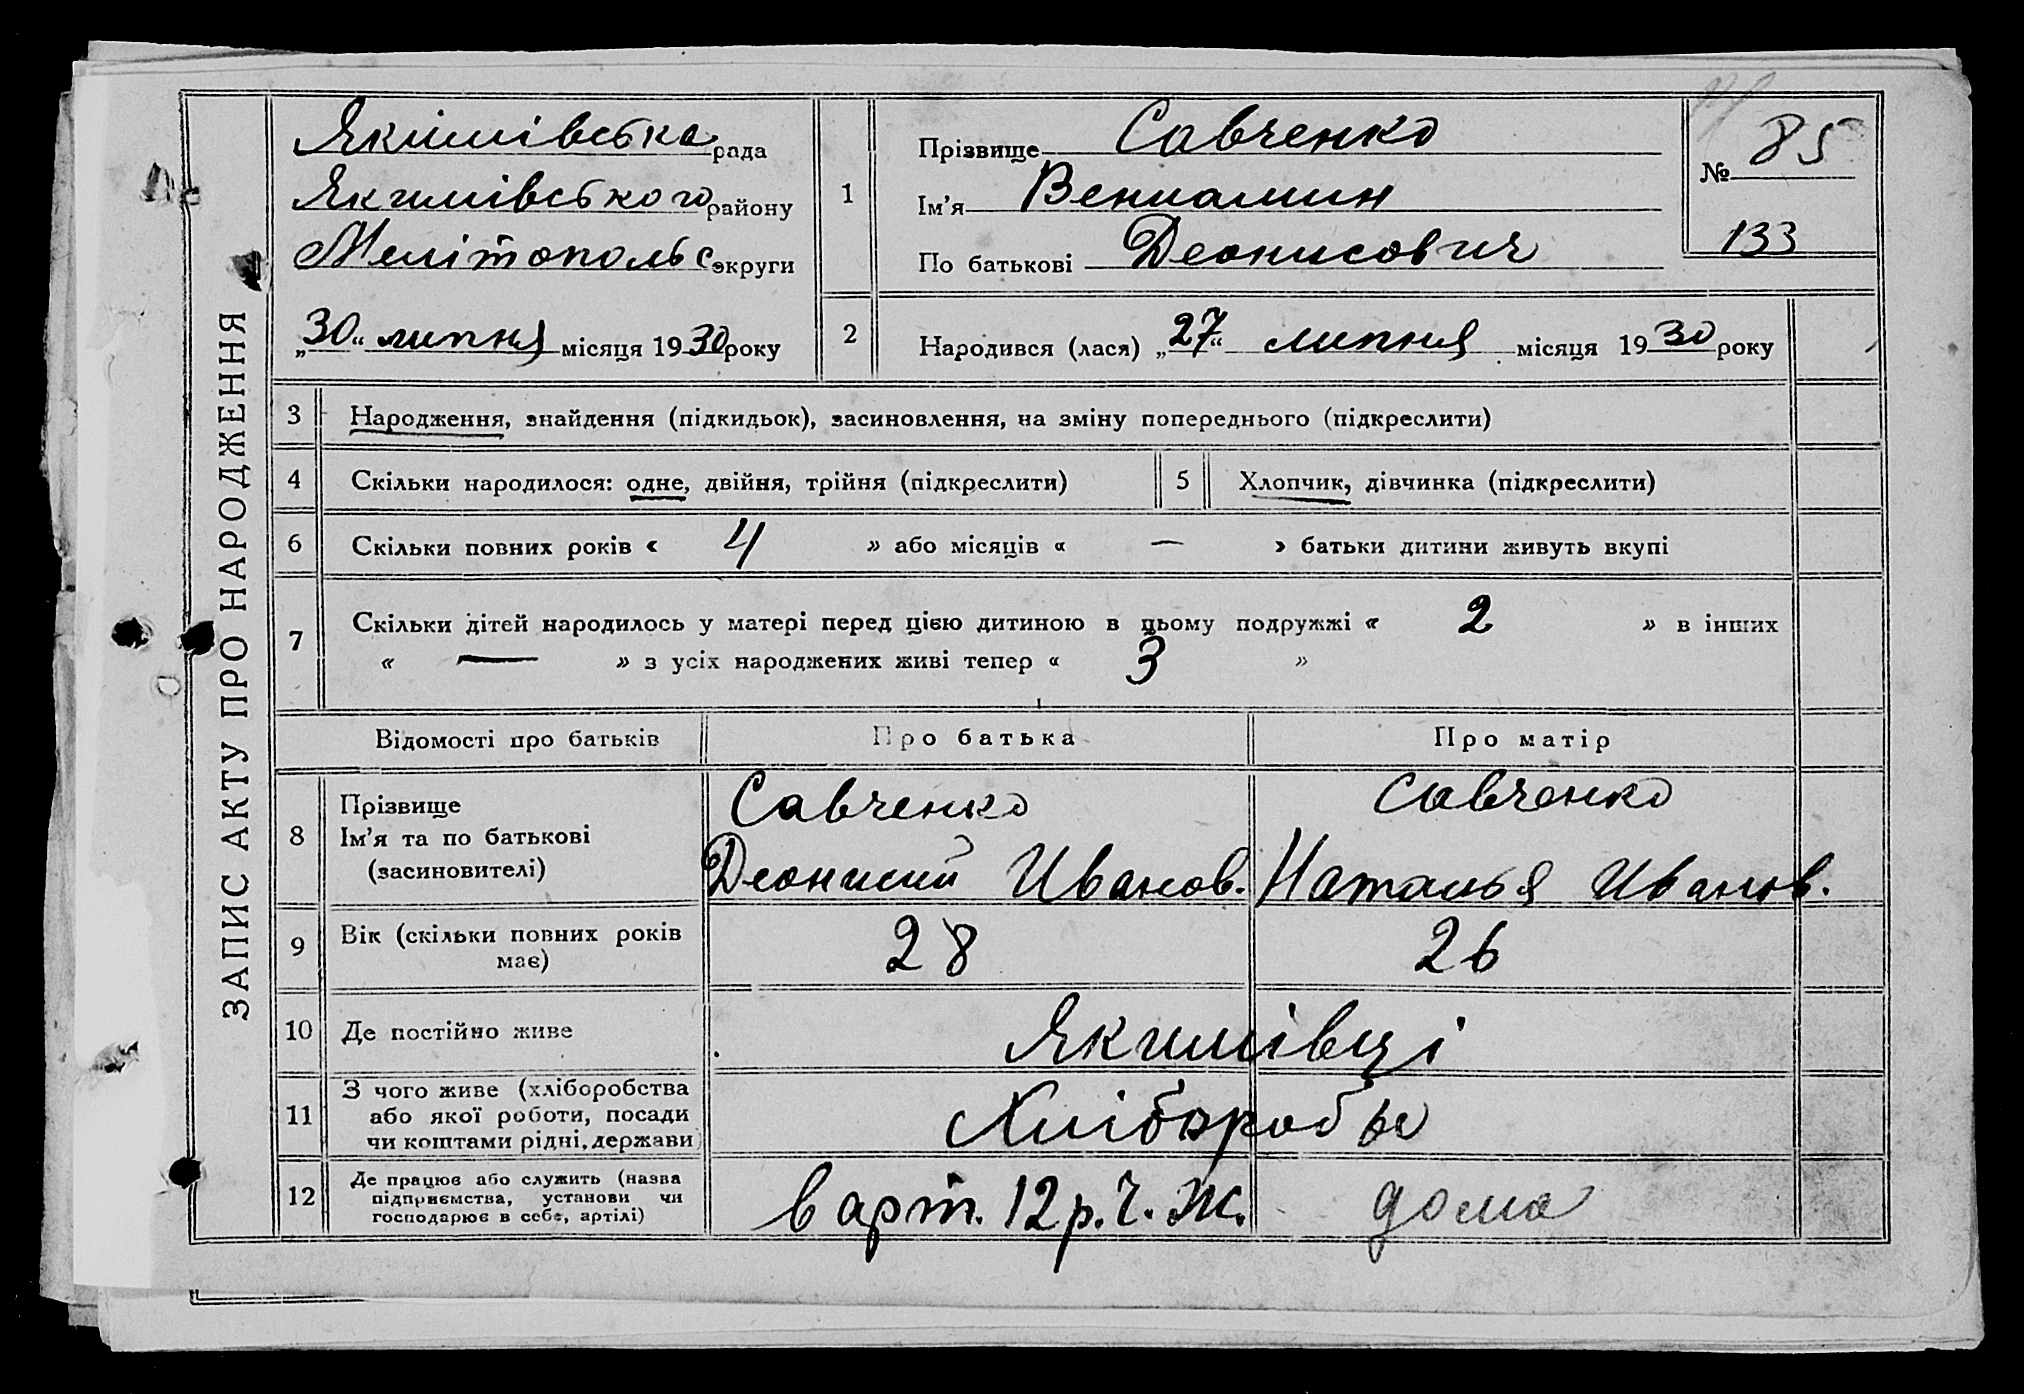 ЗАПИС АКТУ ПРО НАРОДЖЕННЯ
Якимівська рада
Якимівського району
Мелітопольс. округи
„30“ липня місяця 1930 року
1
Прізвище Савченко
Ім'я Вениамин
По батькові Деонисович
№ 85
133
2
Народився (лася) „27“ липня місяця 1930 року
3 Народження, знайдення (підкидьок), засиновлення, на зміну попереднього (підкреслити)
4 Скільки народилося: одне, двійня, трійня (підкреслити) 5 Хлопчик, дівчинка (підкреслити)
6 Скільки повних років « 4 » або місяців « — » батьки дитини живуть вкупі
7 Скільки дітей народилось у матері перед цією дитиною в цьому подружжі « 2 » в інших
« — » з усіх народжених живі тепер « 3 »
Відомості про батьків Про батька Про матір
8 Прізвище
Ім'я та по батькові
(засиновителі)
Савченко
Деонисий Иванов.
Савченко
Наталья Иванов.
9 Вік (скільки повних років
має)
28 26
10 Де постійно живе Якимівці
11 З чого живе (хліборобства
або якої роботи, посади
чи коштами рідні, держави
Хлібороб
12 Де працює або служить (назва
підприємства, установи чи
господарює в себе, артілі)
в арт. 12 р. Ч. Ж. дома